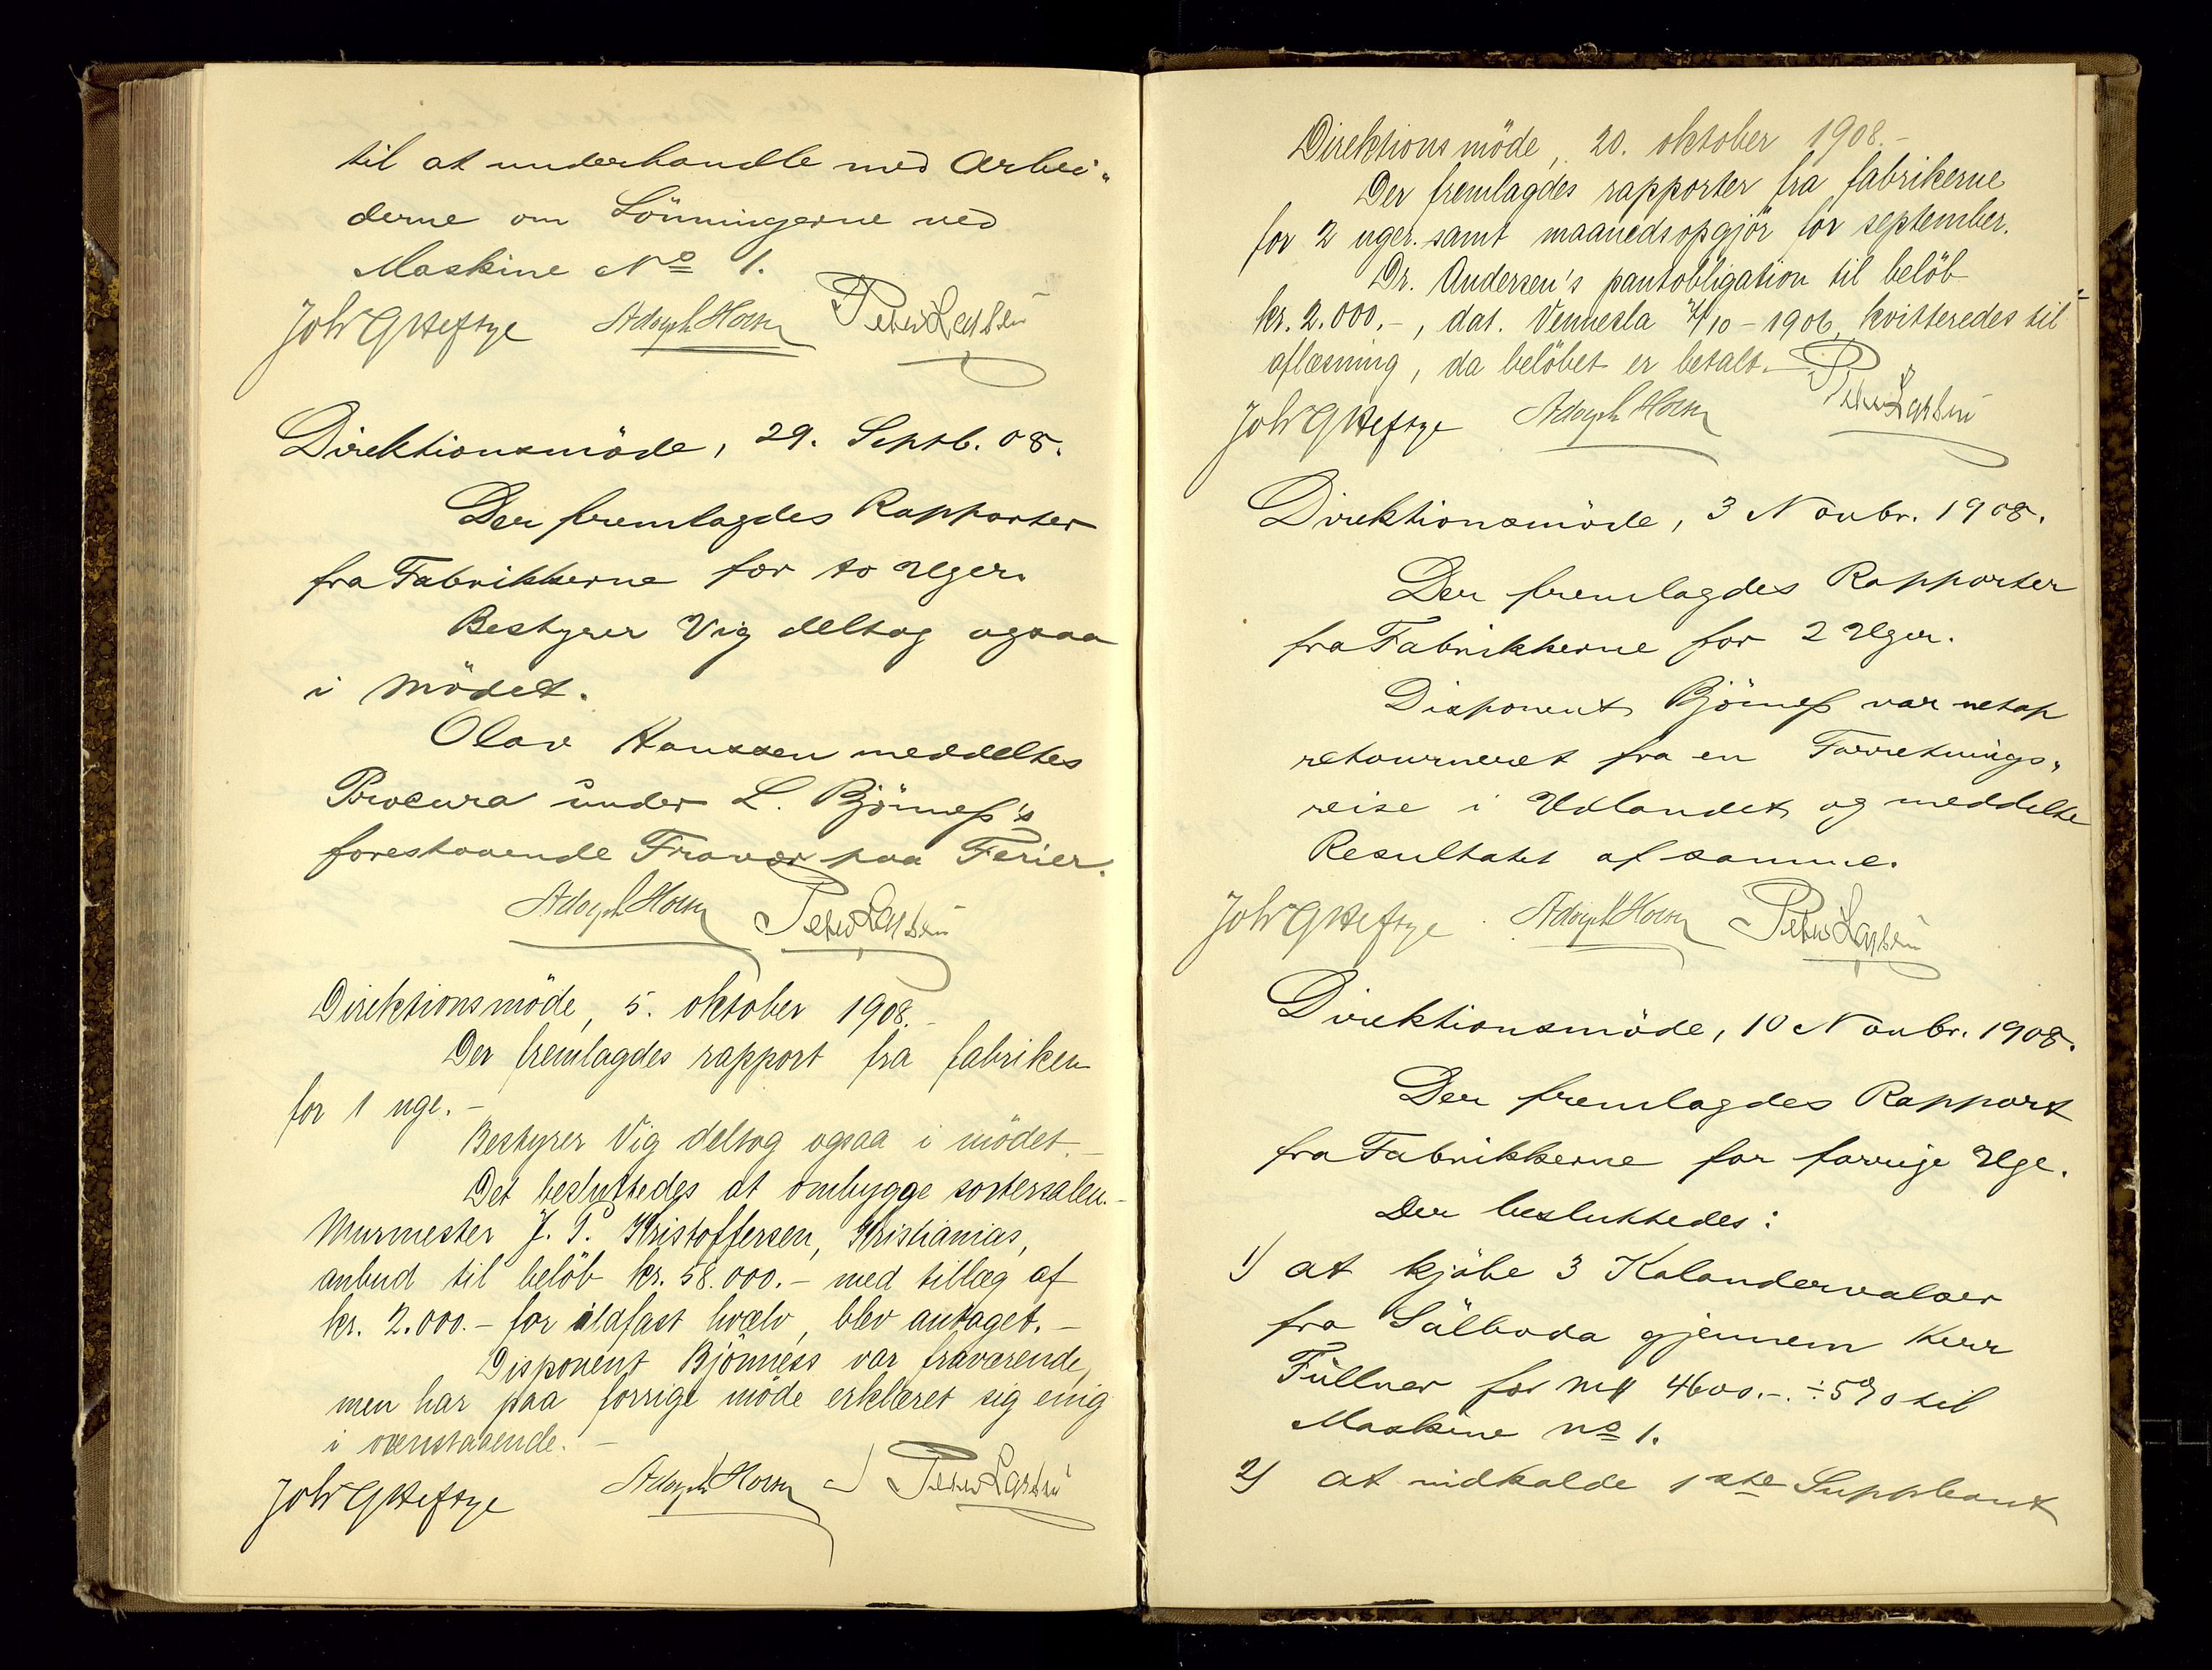 til at underhandle med Arbei-
derne om Lönningerne ved
Maskine No 1.
Joh G Heftye Adolph Hoen Peter Larsen
Direktionsmöde, 29. Septb. 08.
Der fremlagdes Rapporter
fra Fabrikkerne for to Uger.
Bestyrer Vig deltog ogsaa
i Mödet.
Olav Hanssen meddeltes
Procura under L. Björneß's
forestaaende Fravær paa Ferier.
Adolph Hoen Peter Larsen
Direktionsmöde, 5. oktober 1908.-
Der fremlagdes rapport fra fabriken
for 1 uge.-
Bestyrer Vig deltog ogsaa i mödet.-
Det besluttedes at ombygge sortersalen.-
Murmester J. P. Kristoffersen, Kristianias,
anbud til belöb kr. 58.000.- med tillæg af
kr. 2.000.- for ildfast hvælv, blev antaget.-
Disponent Bjönness var fraværende,
men har paa forrige möde erklæret sig enig
i ovenstaaende.-
Joh G Heftye Adolph Hoen Peter Larsen
Direktionsmöde, 20. oktober 1908.-
Der fremlagdes rapporter fra fabrikerne
for 2 uger. samt maanedsopgjör for september.
Dr. Andersen's pantobligation til belöb
kr. 2.000.-, dat. Vennesla /10-1906, kvitteredes til
aflæsning, da belöbet er betalt.-
Joh G Heftye Adolph Hoen Peter Larsen
Direktionsmöde, 3 Novbr. 1908.
Der fremlagdes Rapporter
fra Fabrikkerne for 2 Uger.
Disponent Björneß var netop
retourneret fra en Forretnings-
reise i Udlandet og meddelte
Resultatet af samme.
Joh G Heftye Adolph Hoen Peter Larsen
Direktionsmöde, 10 Novbr. 1908.
Der fremlagdes Rapport
fra Fabrikkerne for forrige Uge.
Der besluttedes:
1) at kjöbe 3 Kalandervalser
fra Sälboda gjennem Herr
Füllner for M 4600.-. ÷ 5% til
Maskine no 1.
2) at indkalde 1ste Suppleant